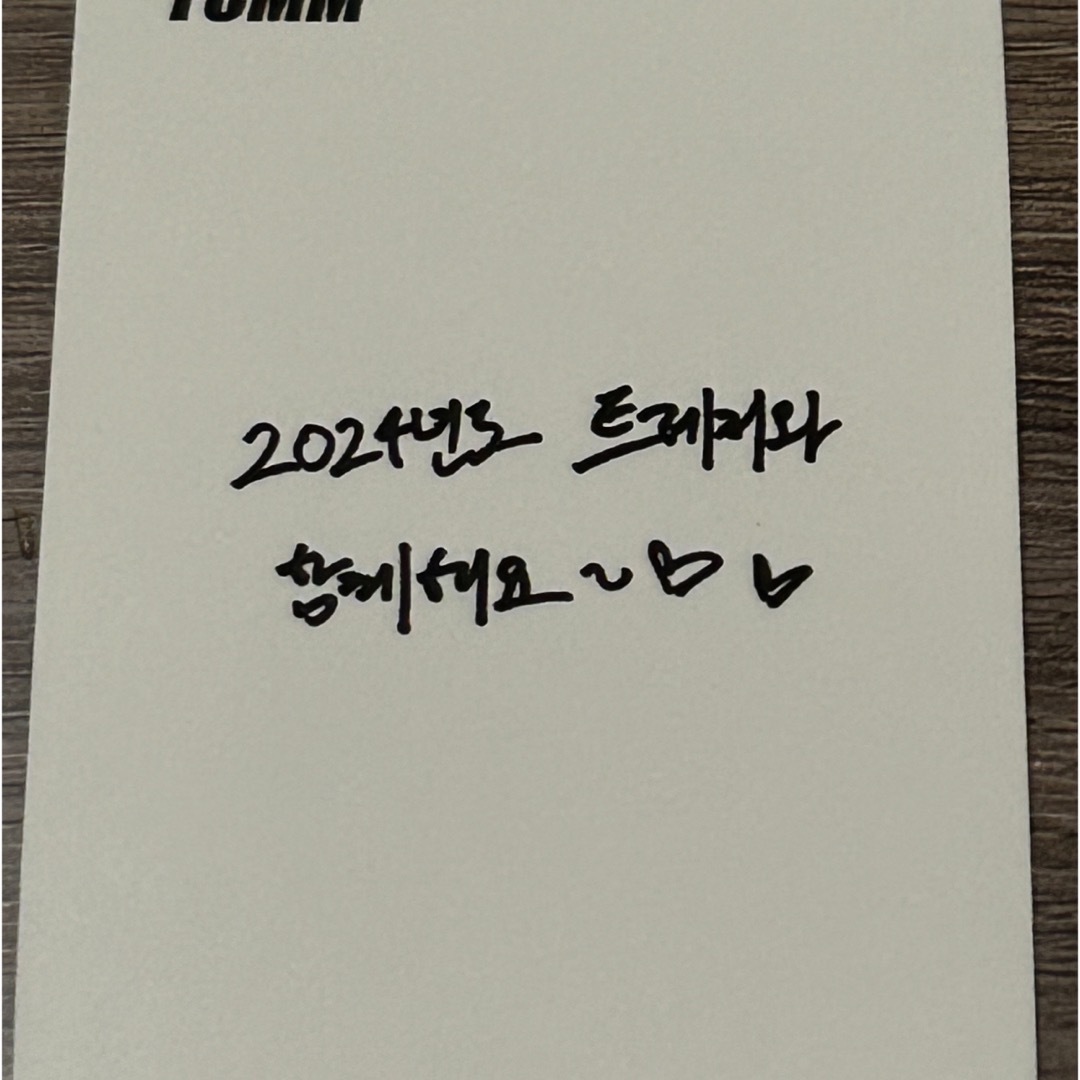 2024년도 트레저와
함께해요~♡♡